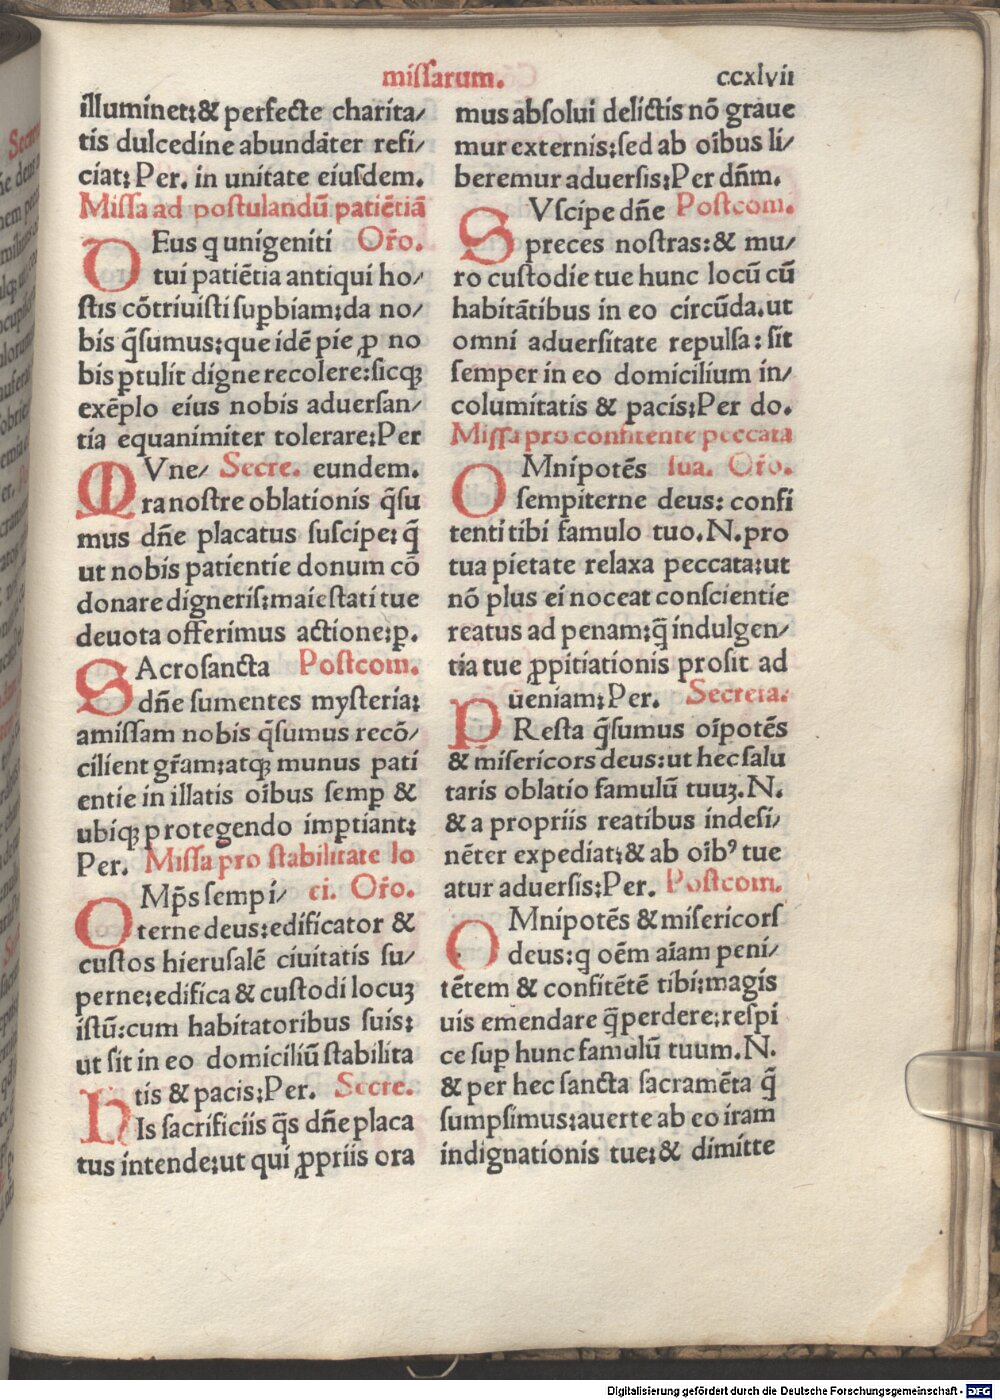 missarum. ccxlvii
illuminet:& perfecte charita/
tis dulcedine abundāter refi/
ciat: Per. in unitate eiusdem.
Missa ad postulandū patiētiā
DEus q unigeniti Oro.
tui patiētia antiqui ho/
stis cōtriuisti supbiam:da no/
bis q̄sumus:que idē pie ꝓ no
bis ptulit digne recolere:sicqꝫ
exēplo eius nobis aduersan/
tia equanimiter tolerare:Per
MVne/ Secre. eundem.
ra nostre oblationis q̄su
mus dn̄e placatus suscipe: q̄
ut nobis patientie donum cō
donare digneris:maiestati tue
deuota offerimus actione:p.
SAcrosancta Postcom.
dn̄e sumentes mysteria:
amissam nobis q̄sumus recō/
cilient gr̄am:atqꝫ munus pati
entie in illatis oībus semꝑ &
ubiqꝫ protegendo imꝑtiant:
Per. Missa pro stabilitate lo
OMp̄s sempi/ ci. Oro.
terne deus:edificator &
custos hierusalē ciuitatis su/
perne:edifica & custodi locuꝫ
istū:cum habitatoribus suis:
ut sit in eo domiciliū stabilita
tis & pacis:Per. Secre.
HIs sacrificiis q̄s dn̄e placa
tus intende:ut qui ꝓpriis ora
mus absolui delictis nō graue
mur externis:sed ab oībus li/
beremur aduersis:Per dn̄m.
SVscipe dn̄e Postcom.
preces nostras:& mu/
ro custodie tue hunc locū cū
habitātibus in eo circūda.ut
omni aduersitate repulsa: sit
semper in eo domicilium in/
columitatis & pacis:Per do.
Missa pro confitente peccata
OMnipotēs sua. Oro.
sempiterne deus: confi
tenti tibi famulo tuo.N.pro
tua pietate relaxa peccata:ut
nō plus ei noceat conscientie
reatus ad penam:q̄ indulgen/
tia tue ꝓpitiationis prosit ad
ueniam:Per. Secreta.
PResta q̄sumus oīpotēs
& misericors deus:ut hec salu
taris oblatio famulū tuuꝫ.N.
& a propriis reatibus indesi/
nēter expediat:& ab oīb⁹ tue
atur aduersis:Per. Postcom.
OMnipotēs & misericors
deus:q oēm aīam peni/
tētem & confitētē tibi:magis
uis emendare q̄ perdere:respi
ce suꝑ hunc famulū tuum.N.
& per hec sancta sacramēta q̄
sumpsimus:auerte ab eo iram
indignationis tue:& dimitte
Digitalisierung gefördert durch die Deutsche Forschungsgemeinschaft - DFG